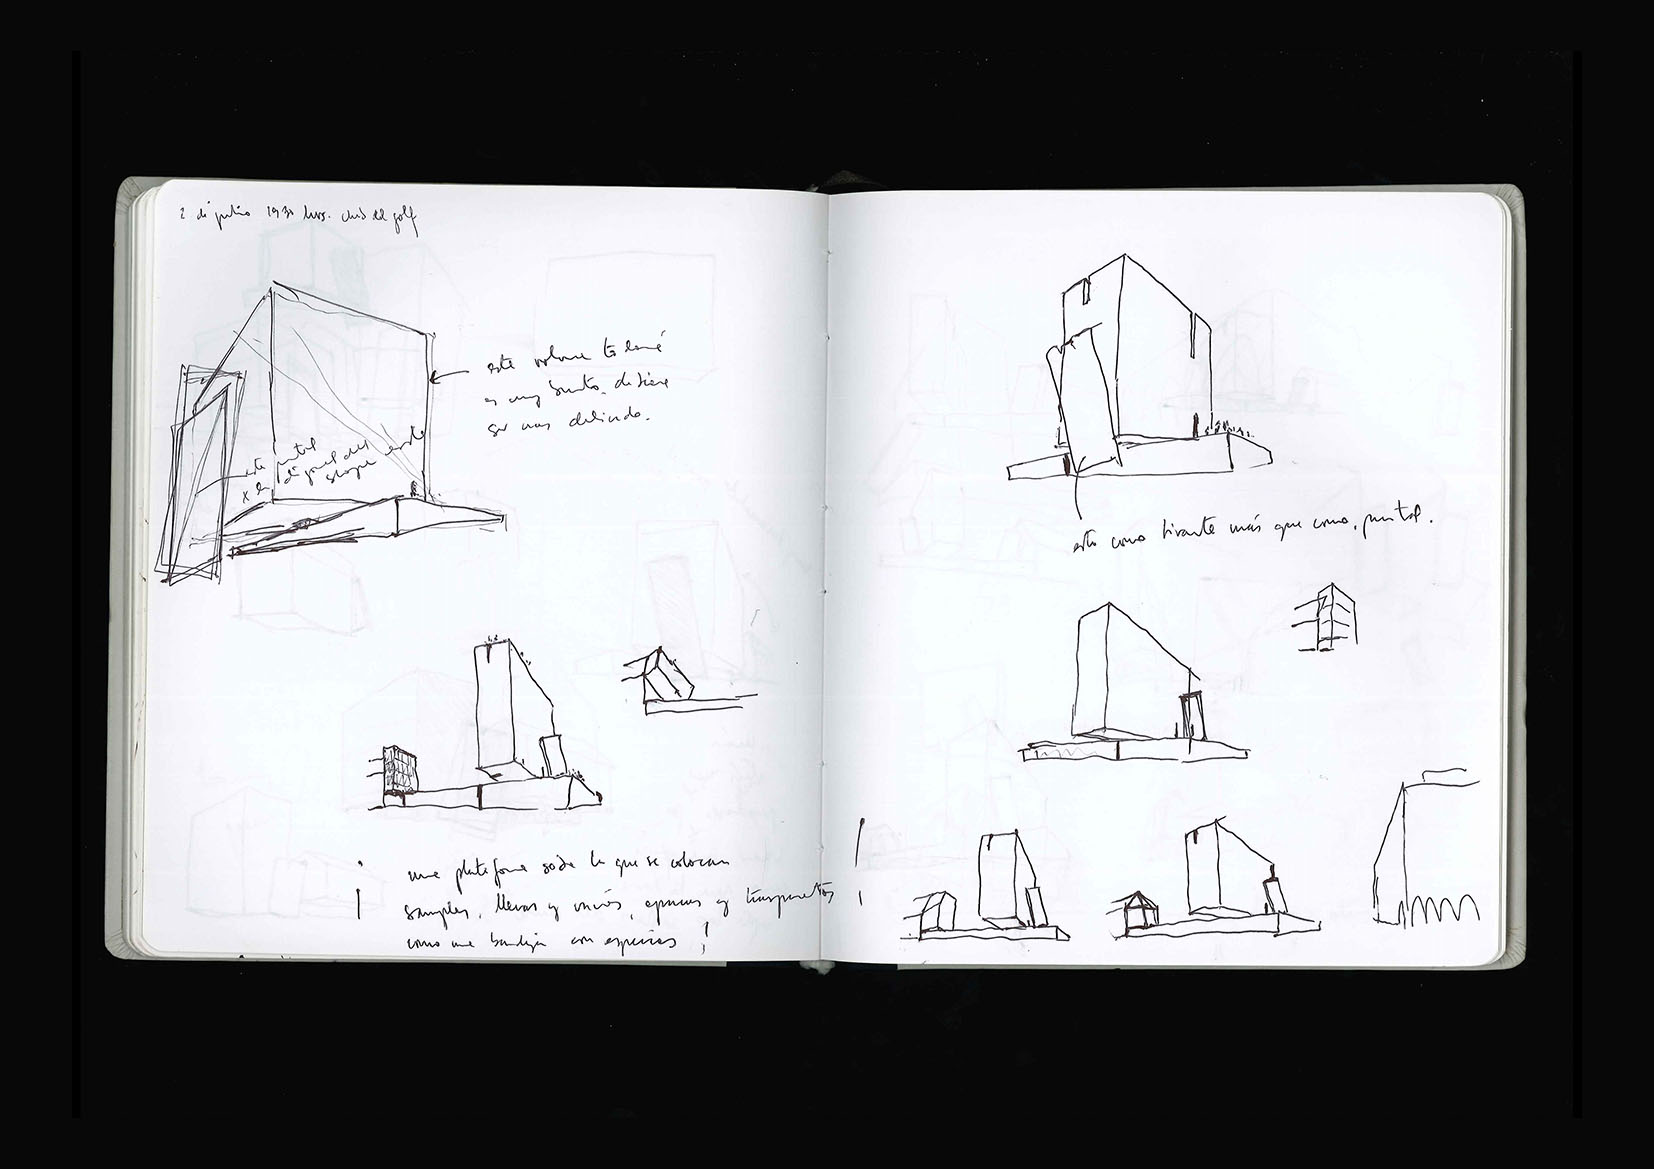 2 de julio 1930 hrs. club de golf
este volumen
es muy bruto. debiera
ser mas delicado.
este puntal
x la
una plataforma sobre la que se colocan
samples, llenos y vacíos, opacos y trasparentes
como una bandeja con especias !
esto como tirante más que como puntal.